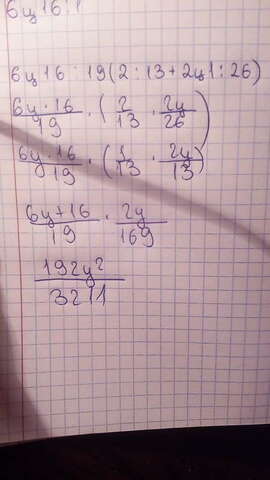 6y 16 : 1
6y 16 : 19(2 : 13 + 2y1 : 26)
6y · 16 / 19 · (2 / 13 · 2y / 26)
6y · 16 / 19 · (1 / 13 · 2y / 13)
6y + 16 / 19 · 2y / 169
192y² / 3211